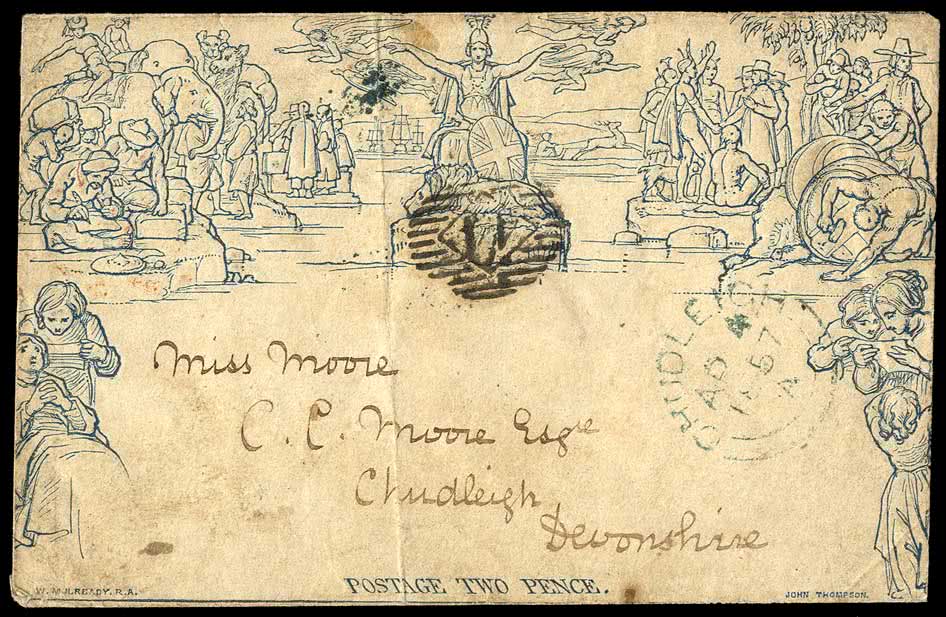 Miss Moore
C. C. Moore Esqre
Chudleigh
Devonshire
CHUDLEIGH
57
A
POSTAGE TWO PENCE.
W. MULREADY. R.A.
JOHN THOMPSON.